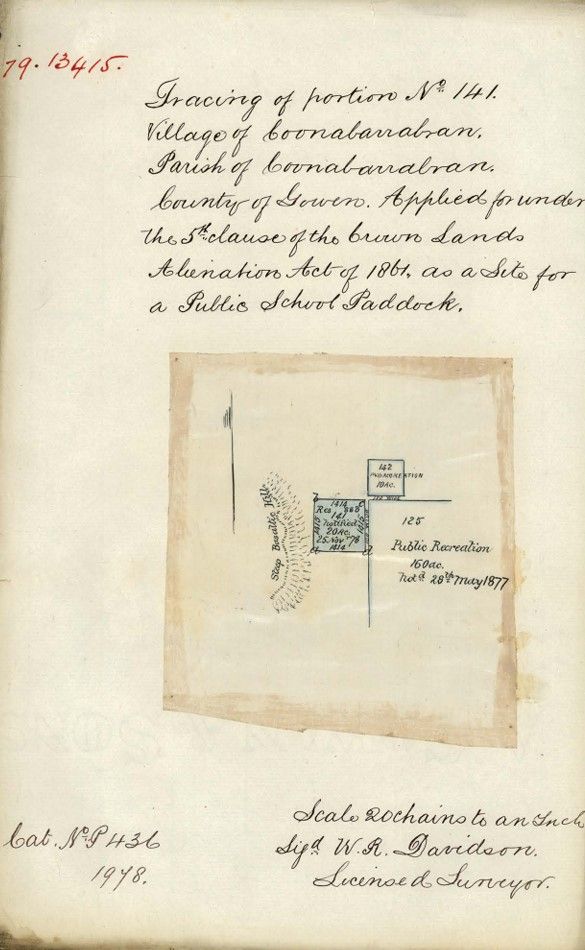 79.13415.
Tracing of portion No. 141.
Village of Coonabarrabran.
Parish of Coonabarrabran.
County of Gowen. Applied for under
the 5th clause of the Crown Lands
Alienation Act of 1861. as a Site for
a Public School Paddock.
142
10Ac.
b 1414 c
Res. 888
141
notified
20Ac.
25 Nov '78
1414
1415
1415
a d
Step Basaltic Hills
125
Public Recreation
160ac.
Notd 28th May 1877
Scale 20 chains to an Inch
Sigd W. R. Davidson.
Licensed Surveyor.
Cat. No. P 436
1978.